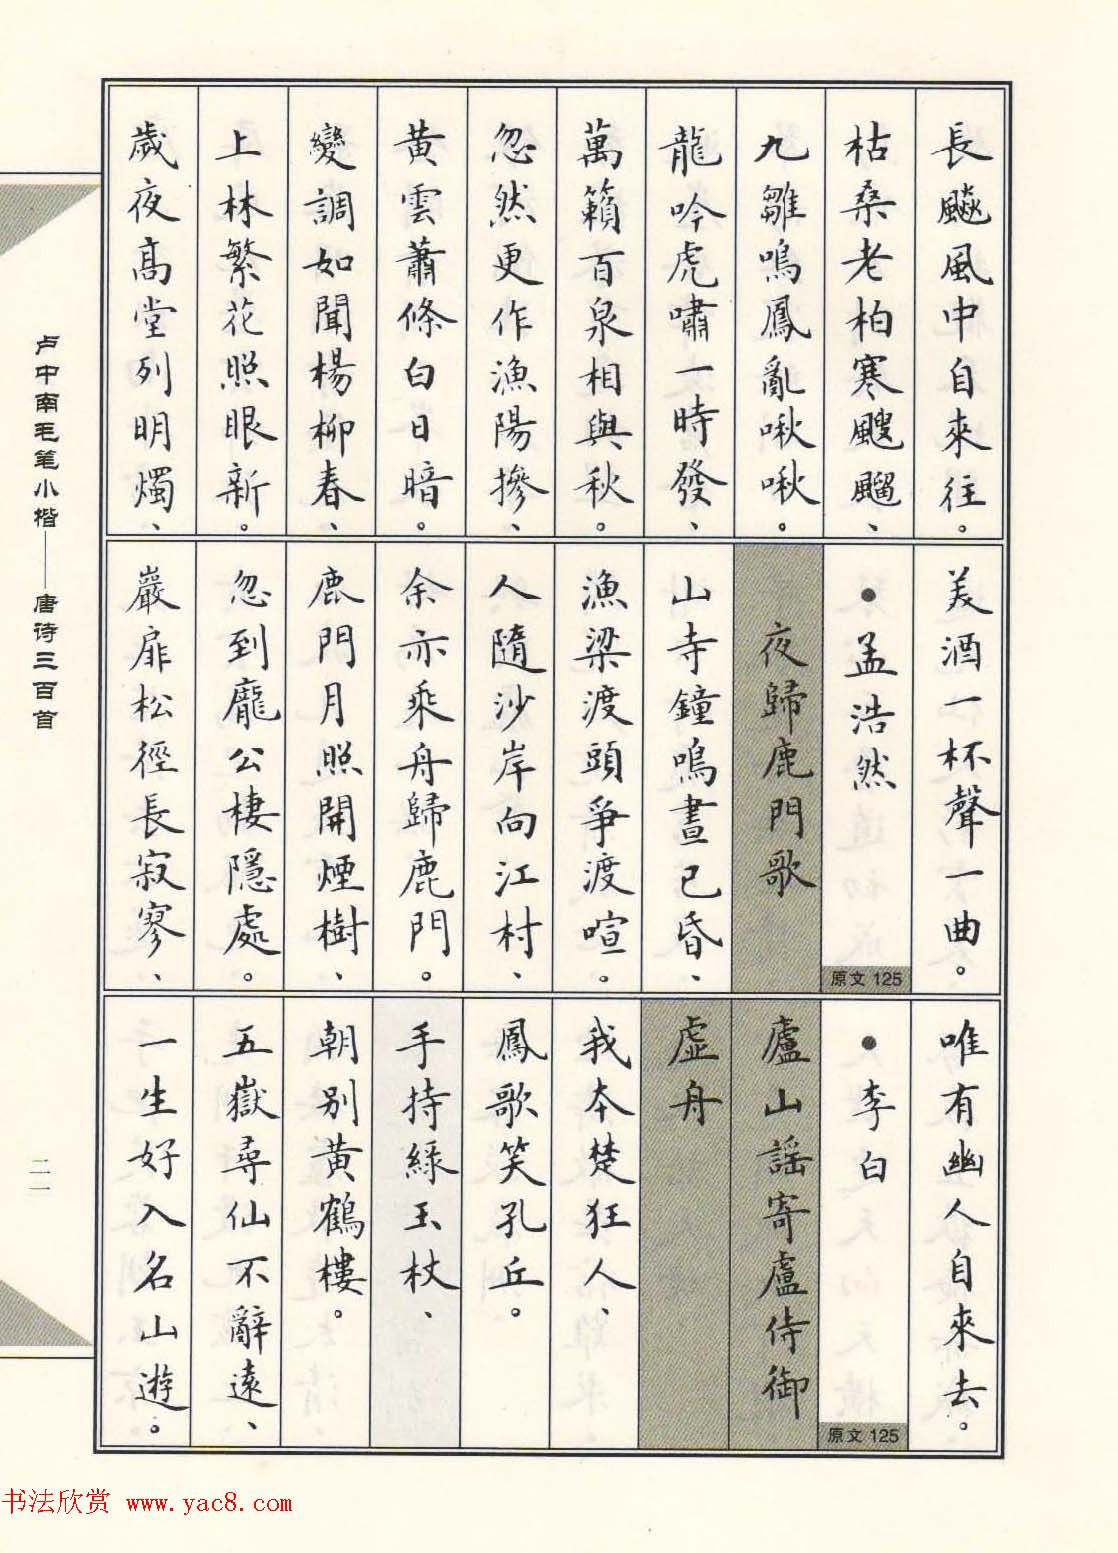 長飈風中自來往。
枯桑老柏寒颼飀、
九雛鳴鳳亂啾啾。
龍吟虎嘯一時發、
萬籟百泉相與秋。
忽然更作漁陽摻、
黄雲蕭條白日暗。
變調如聞楊柳春、
上林繁花照眼新。
歲夜高堂列明燭、
美酒一杯聲一曲。
●孟浩然
原文 125
夜歸鹿門歌
山寺鐘鳴晝已昏、
漁梁渡頭爭渡喧。
人隨沙岸向江村、
余亦乘舟歸鹿門。
鹿門月照開煙樹、
忽到龐公棲隱處。
巖扉松徑長寂寥、
唯有幽人自來去。
●李白
原文 125
廬山謠寄盧侍御
虛舟
我本楚狂人、
鳳歌笑孔丘。
手持綠玉杖、
朝别黄鶴樓。
五嶽尋仙不辭遠、
一生好入名山遊。
卢中南毛笔小楷——唐诗三百首
二一
书法欣赏 www.yac8.com